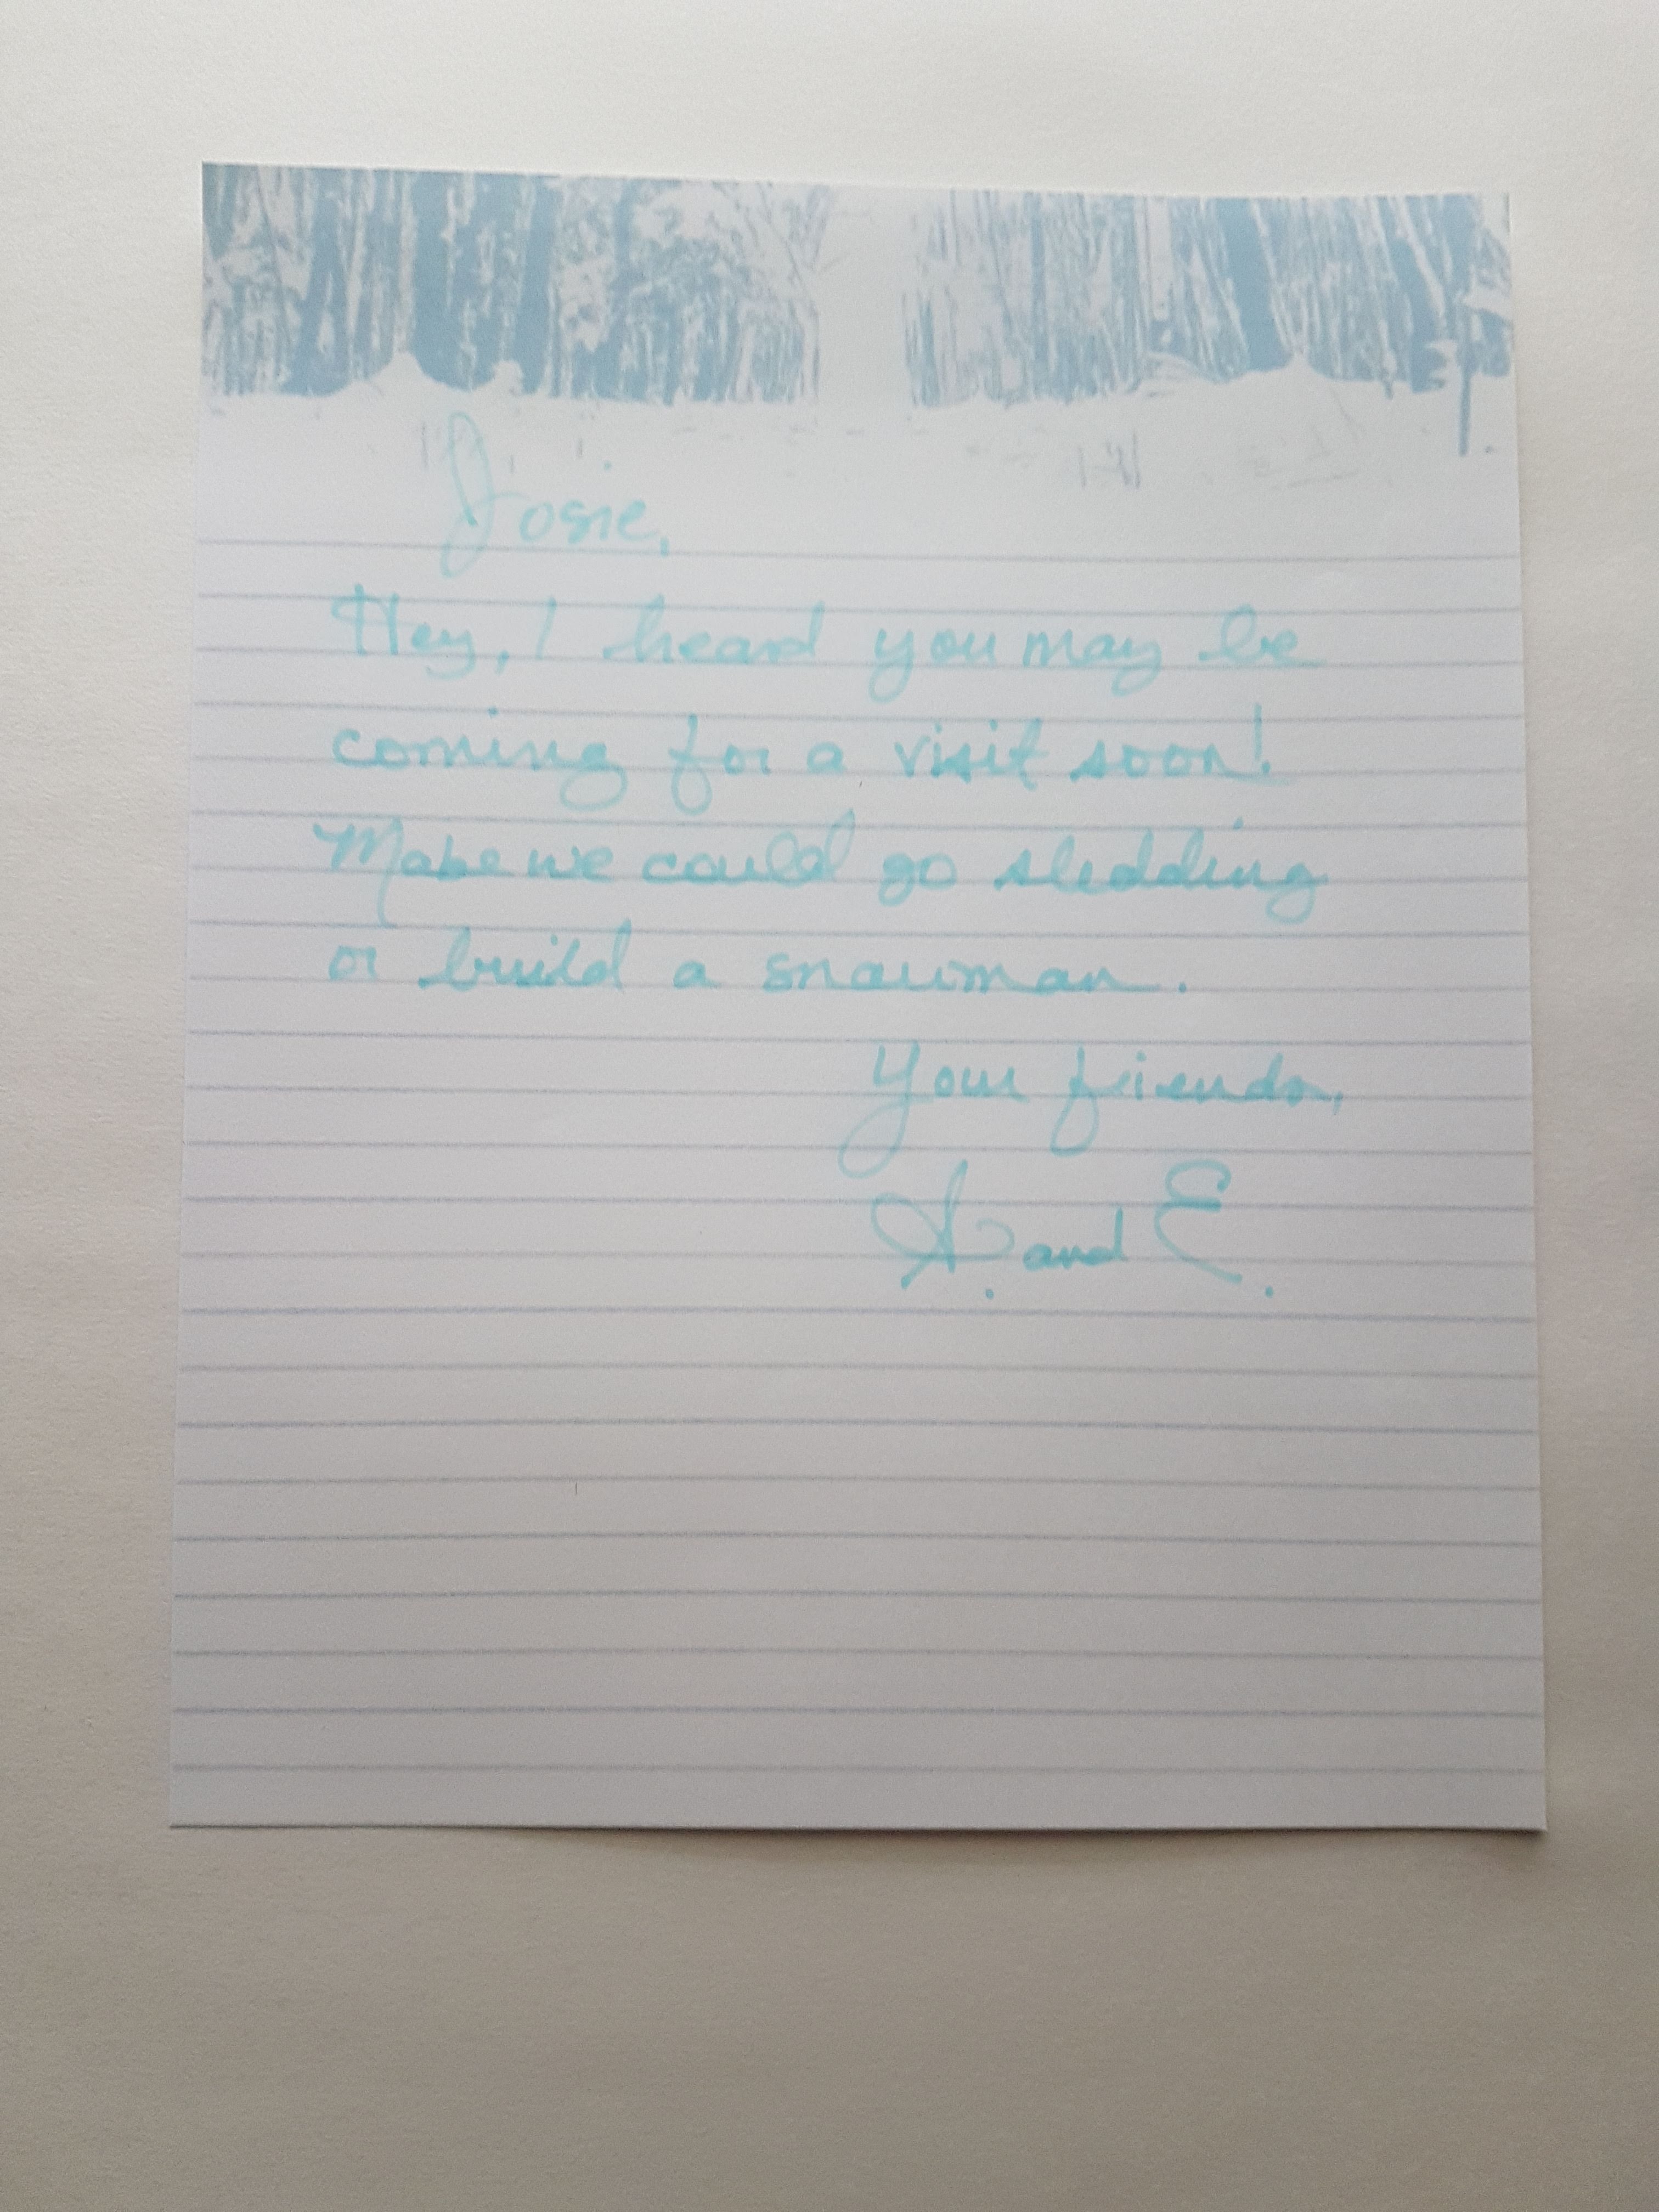 Josie,
Hey, I heard you may be
coming for a visit soon!
Mabe we could go sledding
or build a snowman.
Your friends,
A. and E.